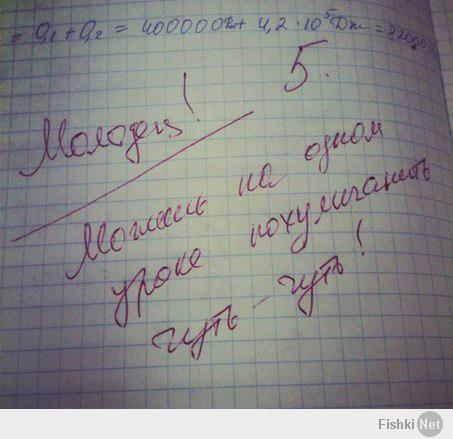 = Q₁ + Q₂ = 400000Дж + 4,2 · 10⁵ Дж = 820000
Молодец! 5.
Можешь на одном
уроке похулиганить
чуть-чуть!
Fishki Net